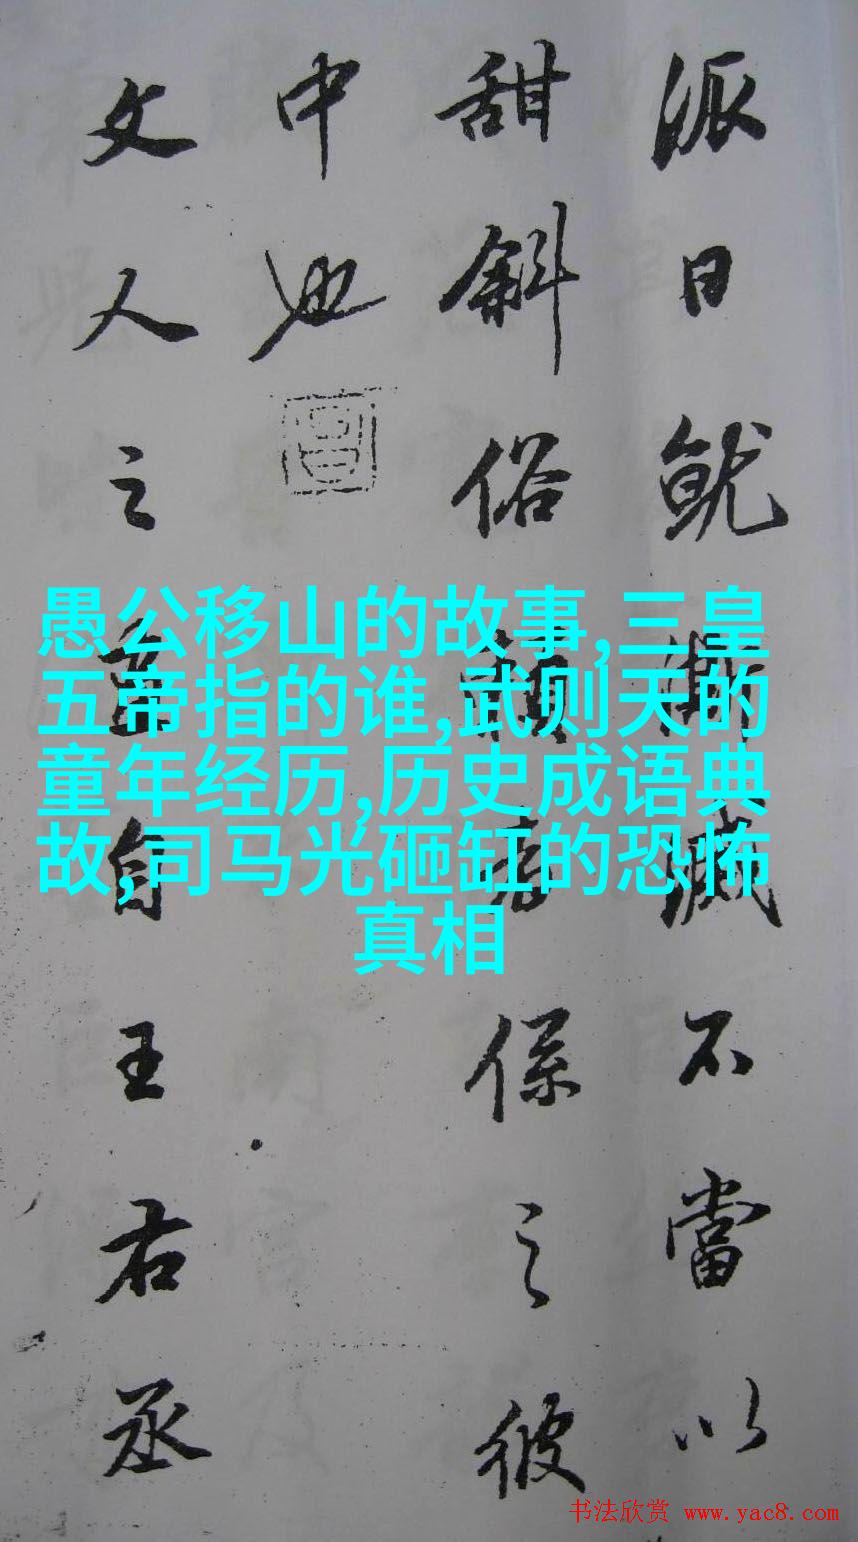 派日就澌滅不當以
甜斜俗賴者係之彼
中也
文人之畫自王右丞
愚公移山的故事,三皇
五帝指的谁,武则天的
童年经历,历史成语典
故,司马光砸缸的恐怖
真相
书法欣赏 www.yac8.com